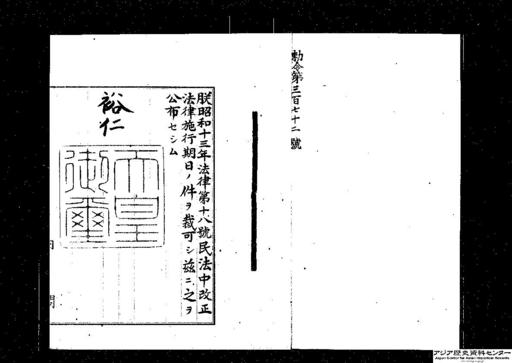 勅令第三百七十二號
朕昭和十三年法律第十八號民法中改正
法律施行期日ノ件ヲ裁可シ茲ニ之ヲ
公布セシム
裕仁
天皇
御璽
内 閣
アジア歴史資料センター
Japan Center for Asian Historical Records